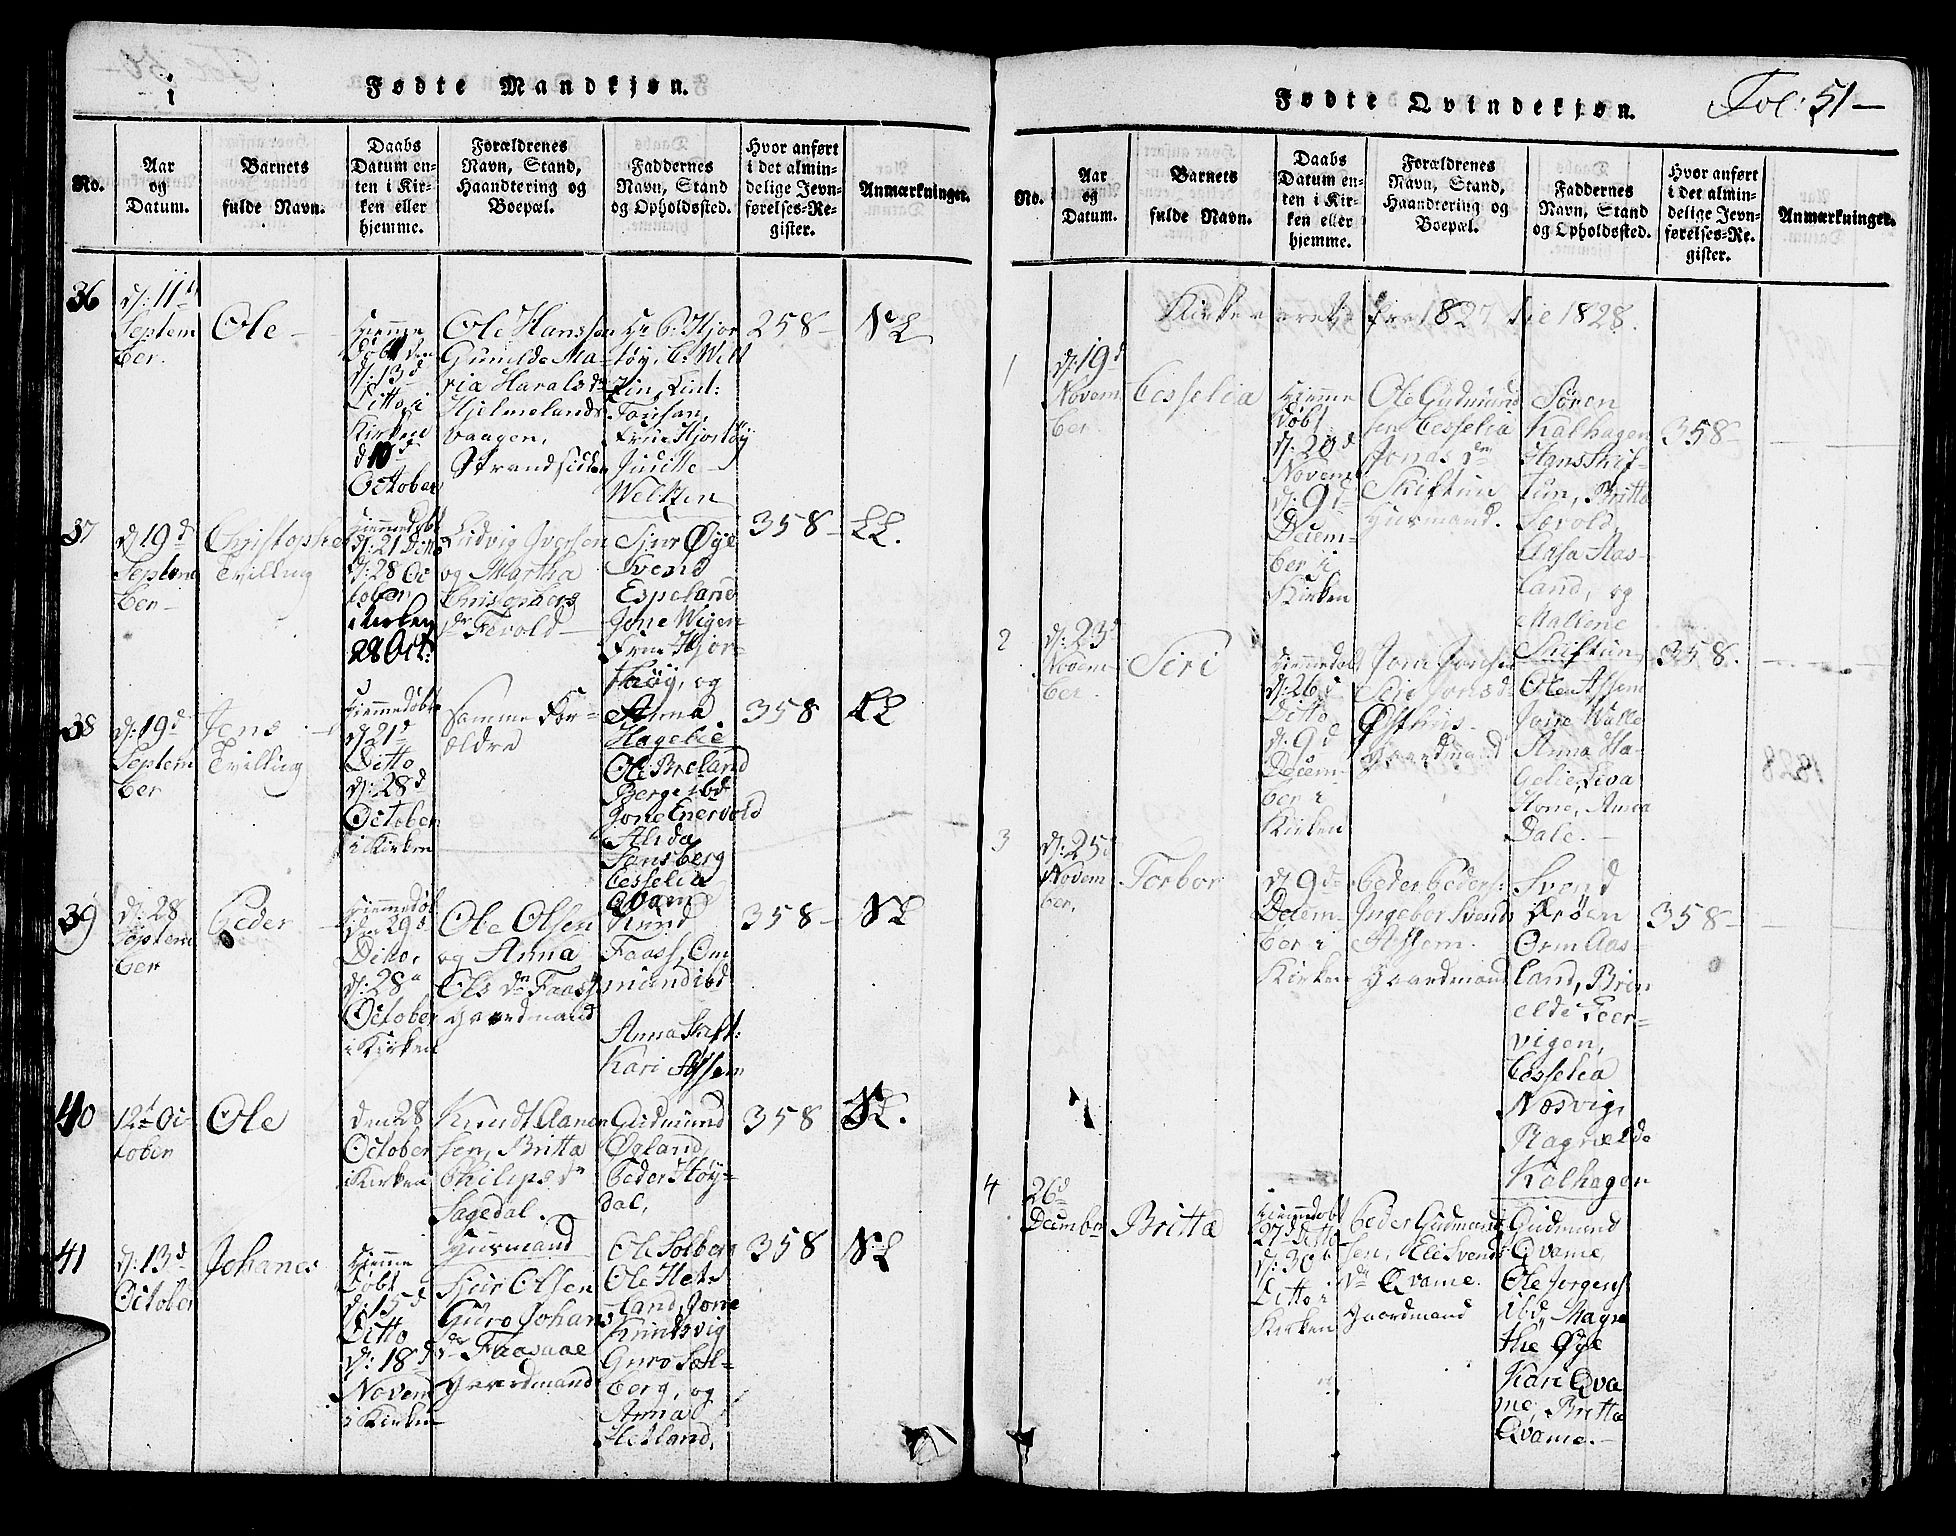 Fødte Mandkjøn.
No.
Aar
og
Datum.
Barnets
fulde Navn.
Daabs
Datum en-
ten i Kir-
ken eller
hjemme.
Forældrenes
Navn, Stand,
Haandtering og
Boepæl.
Faddernes
Navn, Stand
og Opholdssted.
Hvor anført
i det almin-
delige Jevn-
førelses-Re-
gister.
Anmærkninger.
36
d: 11
Septem
ber.
Ole
Hiemme
døbt den
d: 13d
Ditto i
Kirken
d 10d
October
Ole Hanssen
Gunilde Ma-
ria Haralsdr
Hjelmelands
vaagen,
Strandsidder
Hjor
tøy,
Frue Hjortøy
Juditte
Weltzen
258
37
d 19d
Septem
ber
Christopher
Tvilling
Hiemmedøbt
d: 21 Ditto
d: 28 Oc
tober
i Kirken
28 Oct:
Ludvig Iversen
og Martha
dr Fevold
Sjur Øye
Svend
Espeland
Jone Wigen
Frue Hjor-
thøy, og
Anna
Hagelie
358
38
d: 19d
Septem
ber
Jens
Tvilling
Hiemmedøbt
d 21d
Ditto
d: 28d
October
i Kirken
Samme For-
ældre
Ole Breland
Berge ibd
Jone Enervold
Alida
Sansberg
Cesselia
Qvame
358
39
d: 28
Septem
ber
Peder
Hiemmedøbt
den 29d
Ditto,
d: 28
October
i Kirken
Ole Olsen
og Anna
Ols dr Faass
Gaardmand
Knud
Faass, Om
mund ibd
Anna Skift:
Kari Assem
358
40
12t Oc
tober
Ole
den 28
October
i Kirken
Knudt Aanen
sen, Britta
Philipsdr
Sagedal.
Huusmand
Gudmund
Øgland,
Peder Høy-
dal,
358
41
d: 13d
October
Johanes
Hiemme
døbt
d: 15d
Ditto
d: 18d
Novem
i Kirken
Sjur Olsen
Guro Johans
dr Faasaae
Gaardmand
Ole Solberg
Ole Het-
land, Jone
Knudsvig
Guro Sol-
berg, og
Anna
Hetland,
358
Fødte Qvindekjøn.
Fol: 51
No.
Aar
og
Datum.
Barnets
fulde Navn.
Daabs
Datum en-
ten i Kir-
ken eller
hjemme.
Forældrenes
Navn, Stand,
Haandtering og
Boepæl.
Faddernes
Navn, Stand
og Opholdssted.
Hvor anført
i det almin-
delige Jevn-
førelses-Re-
gister.
Anmærkninger.
Kirkeaaret fra 1827 til 1828.
1
d: 19d
Novem
ber
Cesselia
Hiemme
døbt
d: 20d
Novem
d: 9d
Decem-
ber i
Kirken
Ole Gudmund
sen Cesselia
Jonas dr
Skiftun
Huusmand.
Søren
Kalhagen
Hans Skif-
tun, Britta
Aasa Aas-
land, og
Mallene
Skiftun
358
2
d: 23d
Novem
ber.
Siri
Hiemmedøbt
d: 26d
Ditto
d: 9d
Decem-
ber i
Kirken
Jone Jonsen
Siri Jonsdr
Østhus
Gaardmand
Ole Assem
Jone Walle
Anna Ha-
gelie, Eva
Hone, Anna
Dale.
358.
3
d: 25d
Novem
ber.
Torbor
d 9de
Decem-
ber i
Kirken
Peder Peders:
Ingebor Svends
Assem.
Gaardmand
Svend
Orm Aas-
land, Brin
elde Leer-
vigen,
Cesselia
Næsvig,
Ragnelde
Kalhagen
358
4
26d
December
Britta
Hiemmedøbt
27d Ditto
d: 30t
Ditto i
Kirken
Peder Gudmund
sen, Eli Svends
dr Qvame.
Gaardmand
Gudmund
Qvame,
Ole Jørgens
ibd, Magre
the Øye
Kari Qva
me, Britta
Qvame.